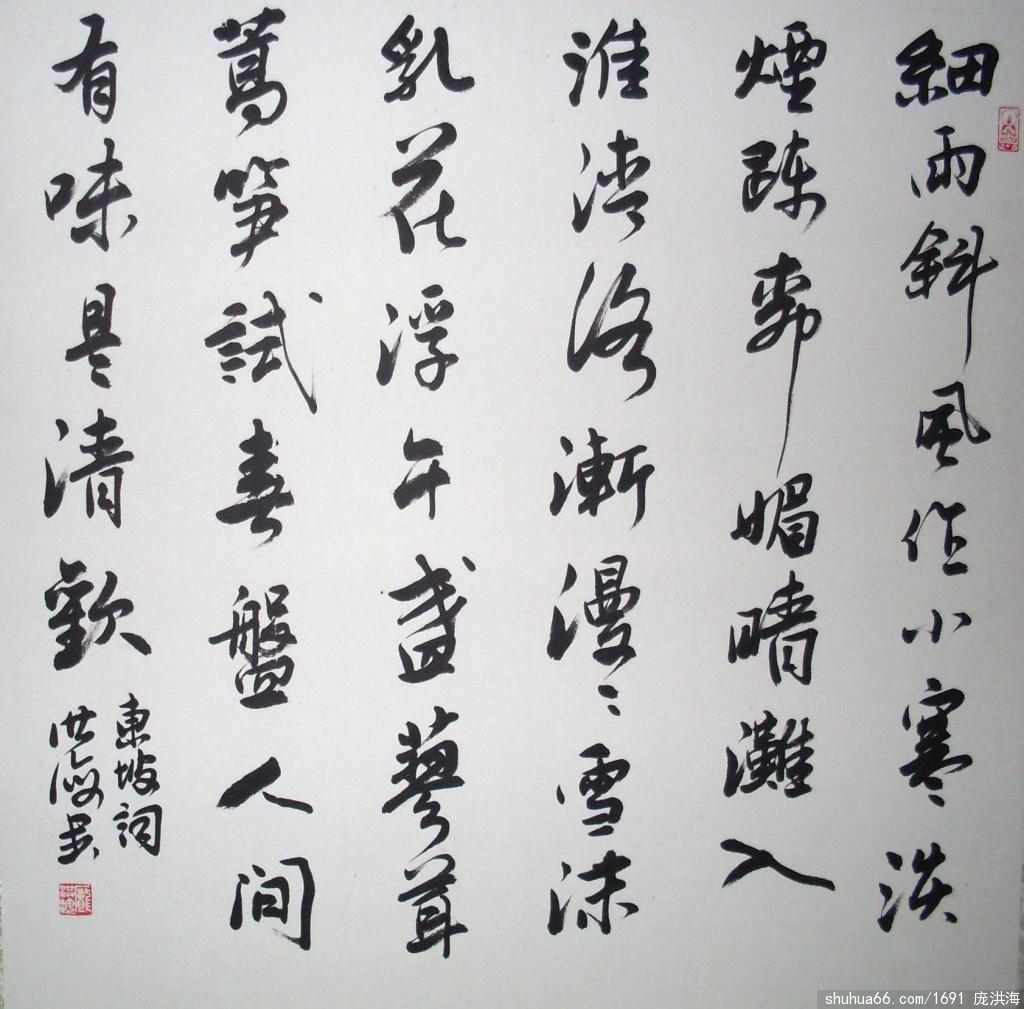 細雨斜風作小寒淡
煙疎柳媚晴灘入
淮清洛漸漫〻雪沫
乳花浮午盞蓼茸
蒿笋試春盤人間
有味是清歡
東坡詞
洪海书
shuhua66.com/1691 庞洪海